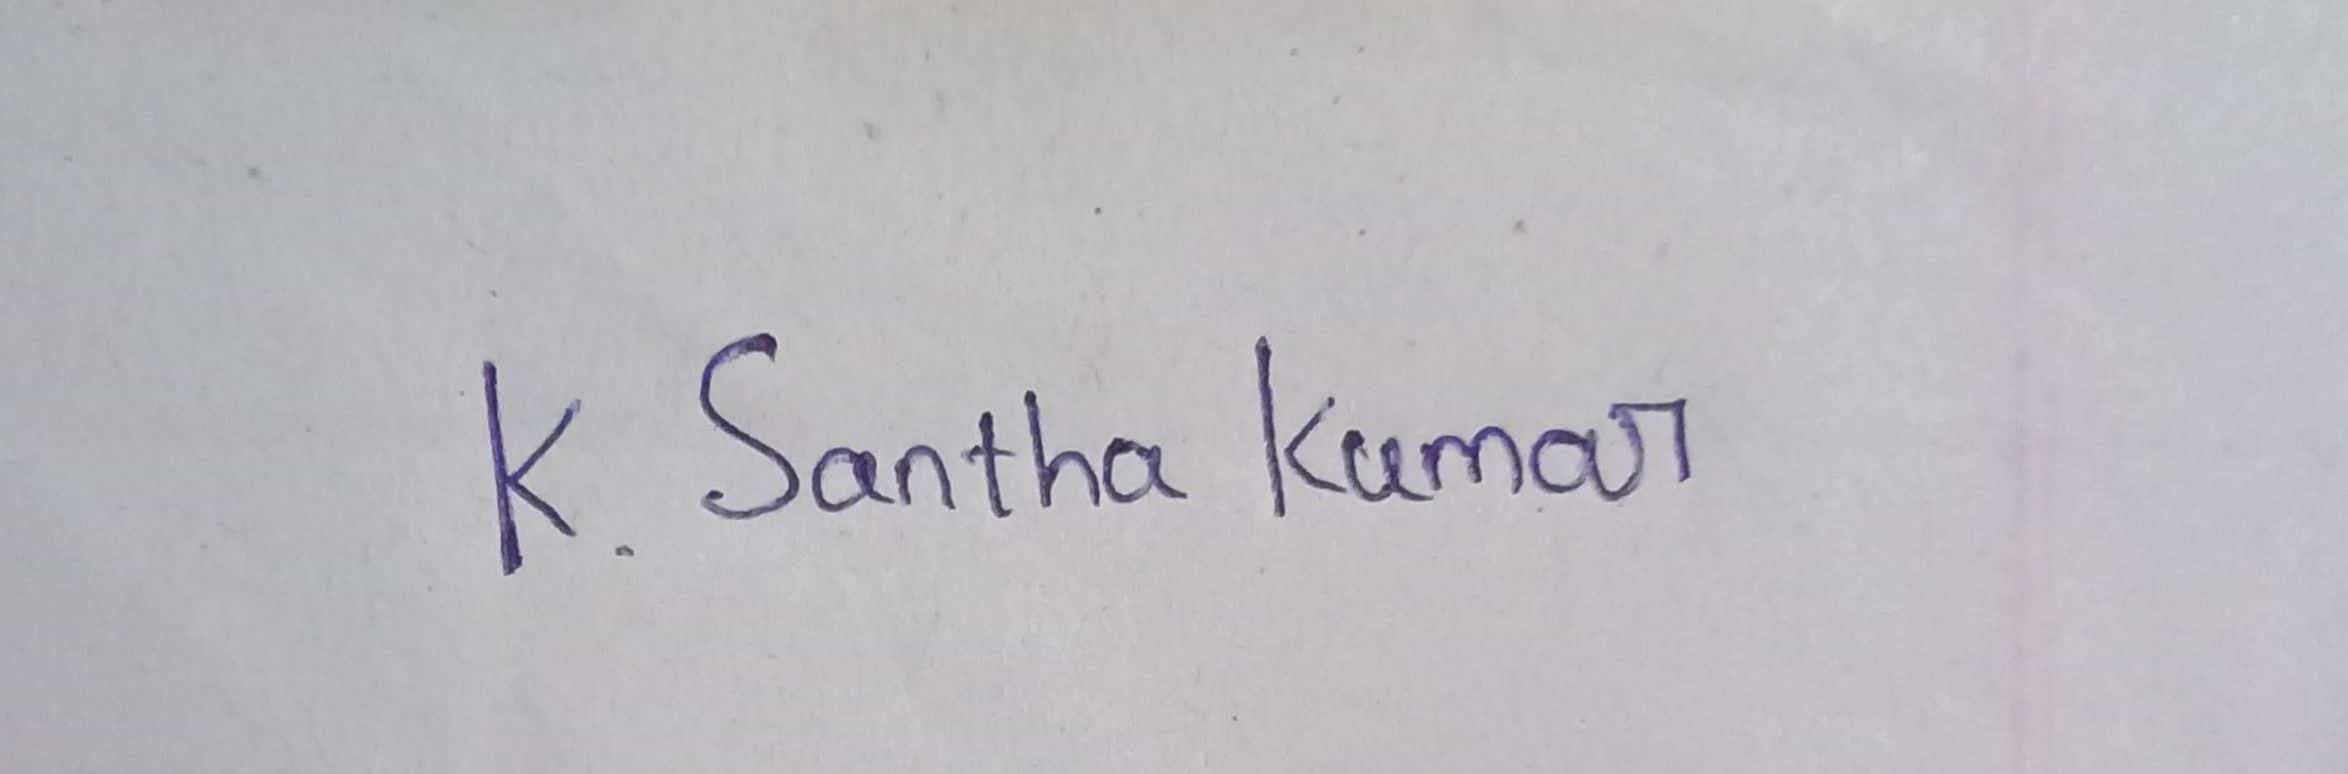 K. Santha Kumar